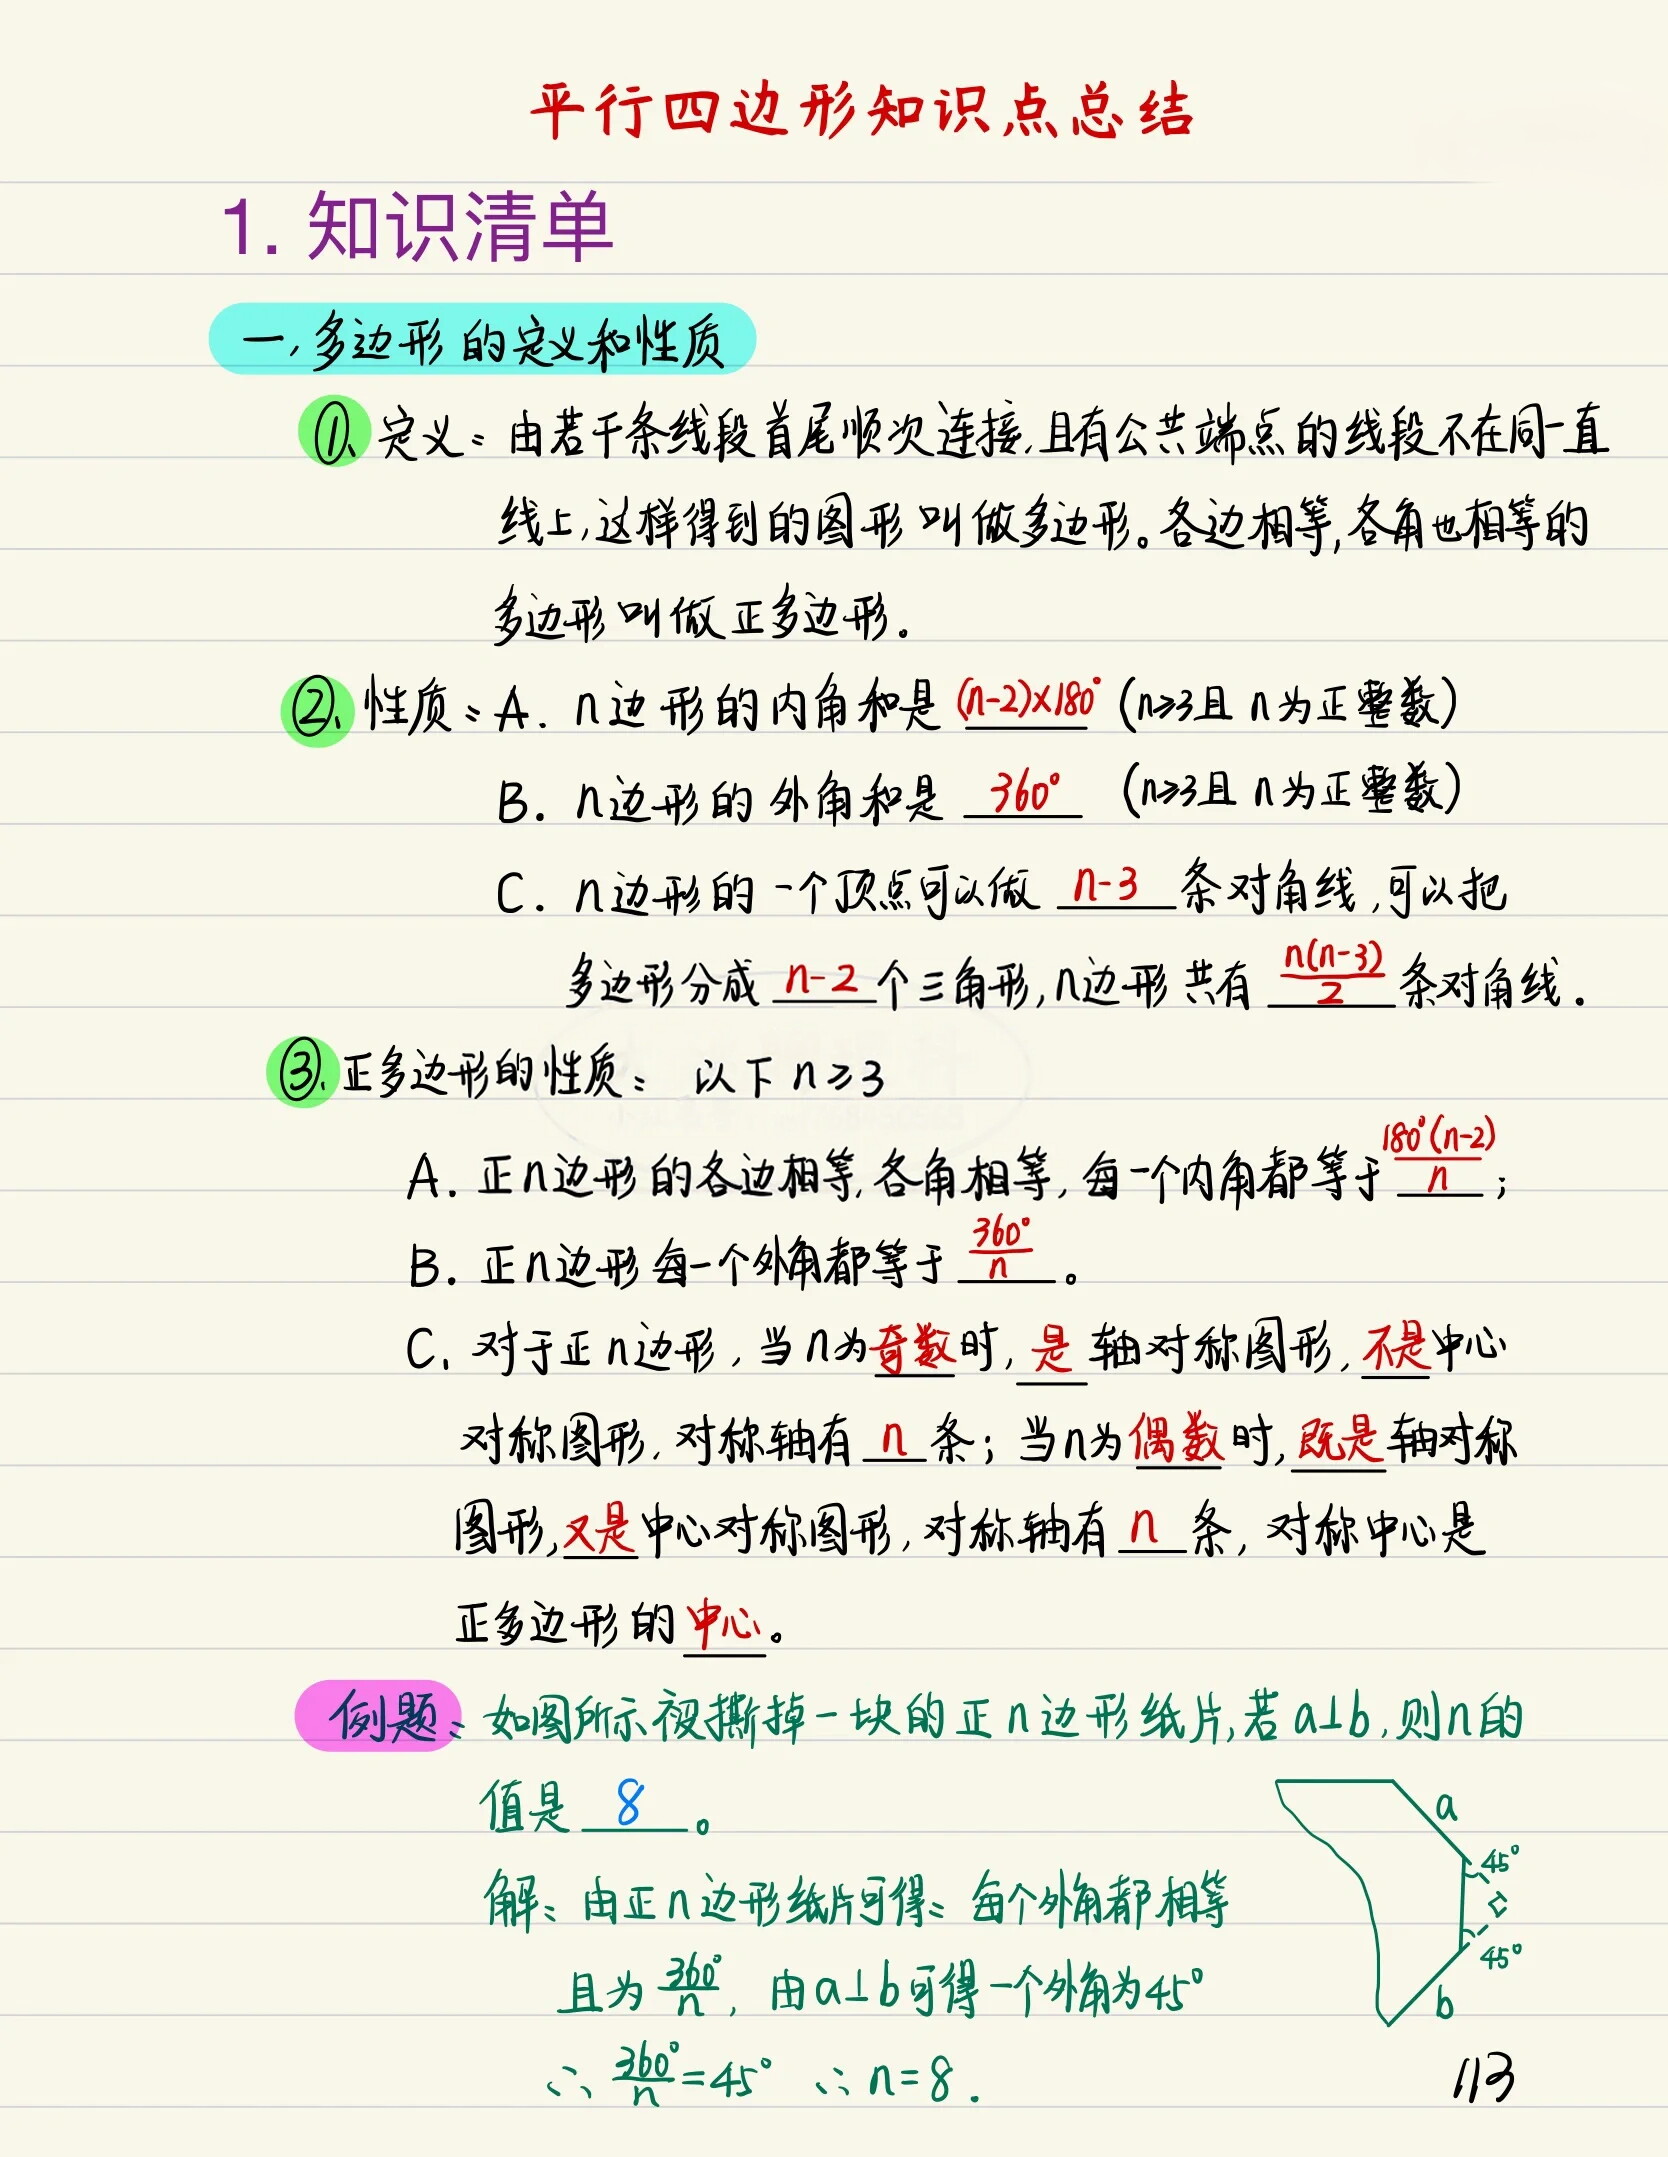 平行四边形知识点总结
1. 知识清单
一,多边形的定义和性质
①、定义：由若干条线段首尾顺次连接,且有公共端点的线段不在同一直
线上,这样得到的图形叫做多边形。各边相等,各角也相等的
多边形叫做正多边形。
②、性质：A. n边形的内角和是 (n-2)×180° (n≥3且n为正整数)
B. n边形的外角和是 360° (n≥3且n为正整数)
C. n边形的一个顶点可以做 n-3 条对角线,可以把
多边形分成 n-2 个三角形,n边形共有 n(n-3)/2 条对角线.
③、正多边形的性质： 以下n≥3
A. 正n边形的各边相等,各角相等,每一个内角都等于 180°(n-2)/n ;
B. 正n边形每一个外角都等于 360°/n 。
C. 对于正n边形,当n为奇数时,是轴对称图形,不是中心
对称图形,对称轴有 n 条;当n为偶数时,既是轴对称
图形,又是中心对称图形,对称轴有 n 条,对称中心是
正多边形的中心。
例题：如图所示被撕掉一块的正n边形纸片,若a⊥b,则n的
值是 8 。
a
45°
45°
b
解：由正n边形纸片可得：每个外角都相等
且为 360°/n, 由a⊥b可得一个外角为45°
∴ 360°/n=45° ∴ n=8.
113